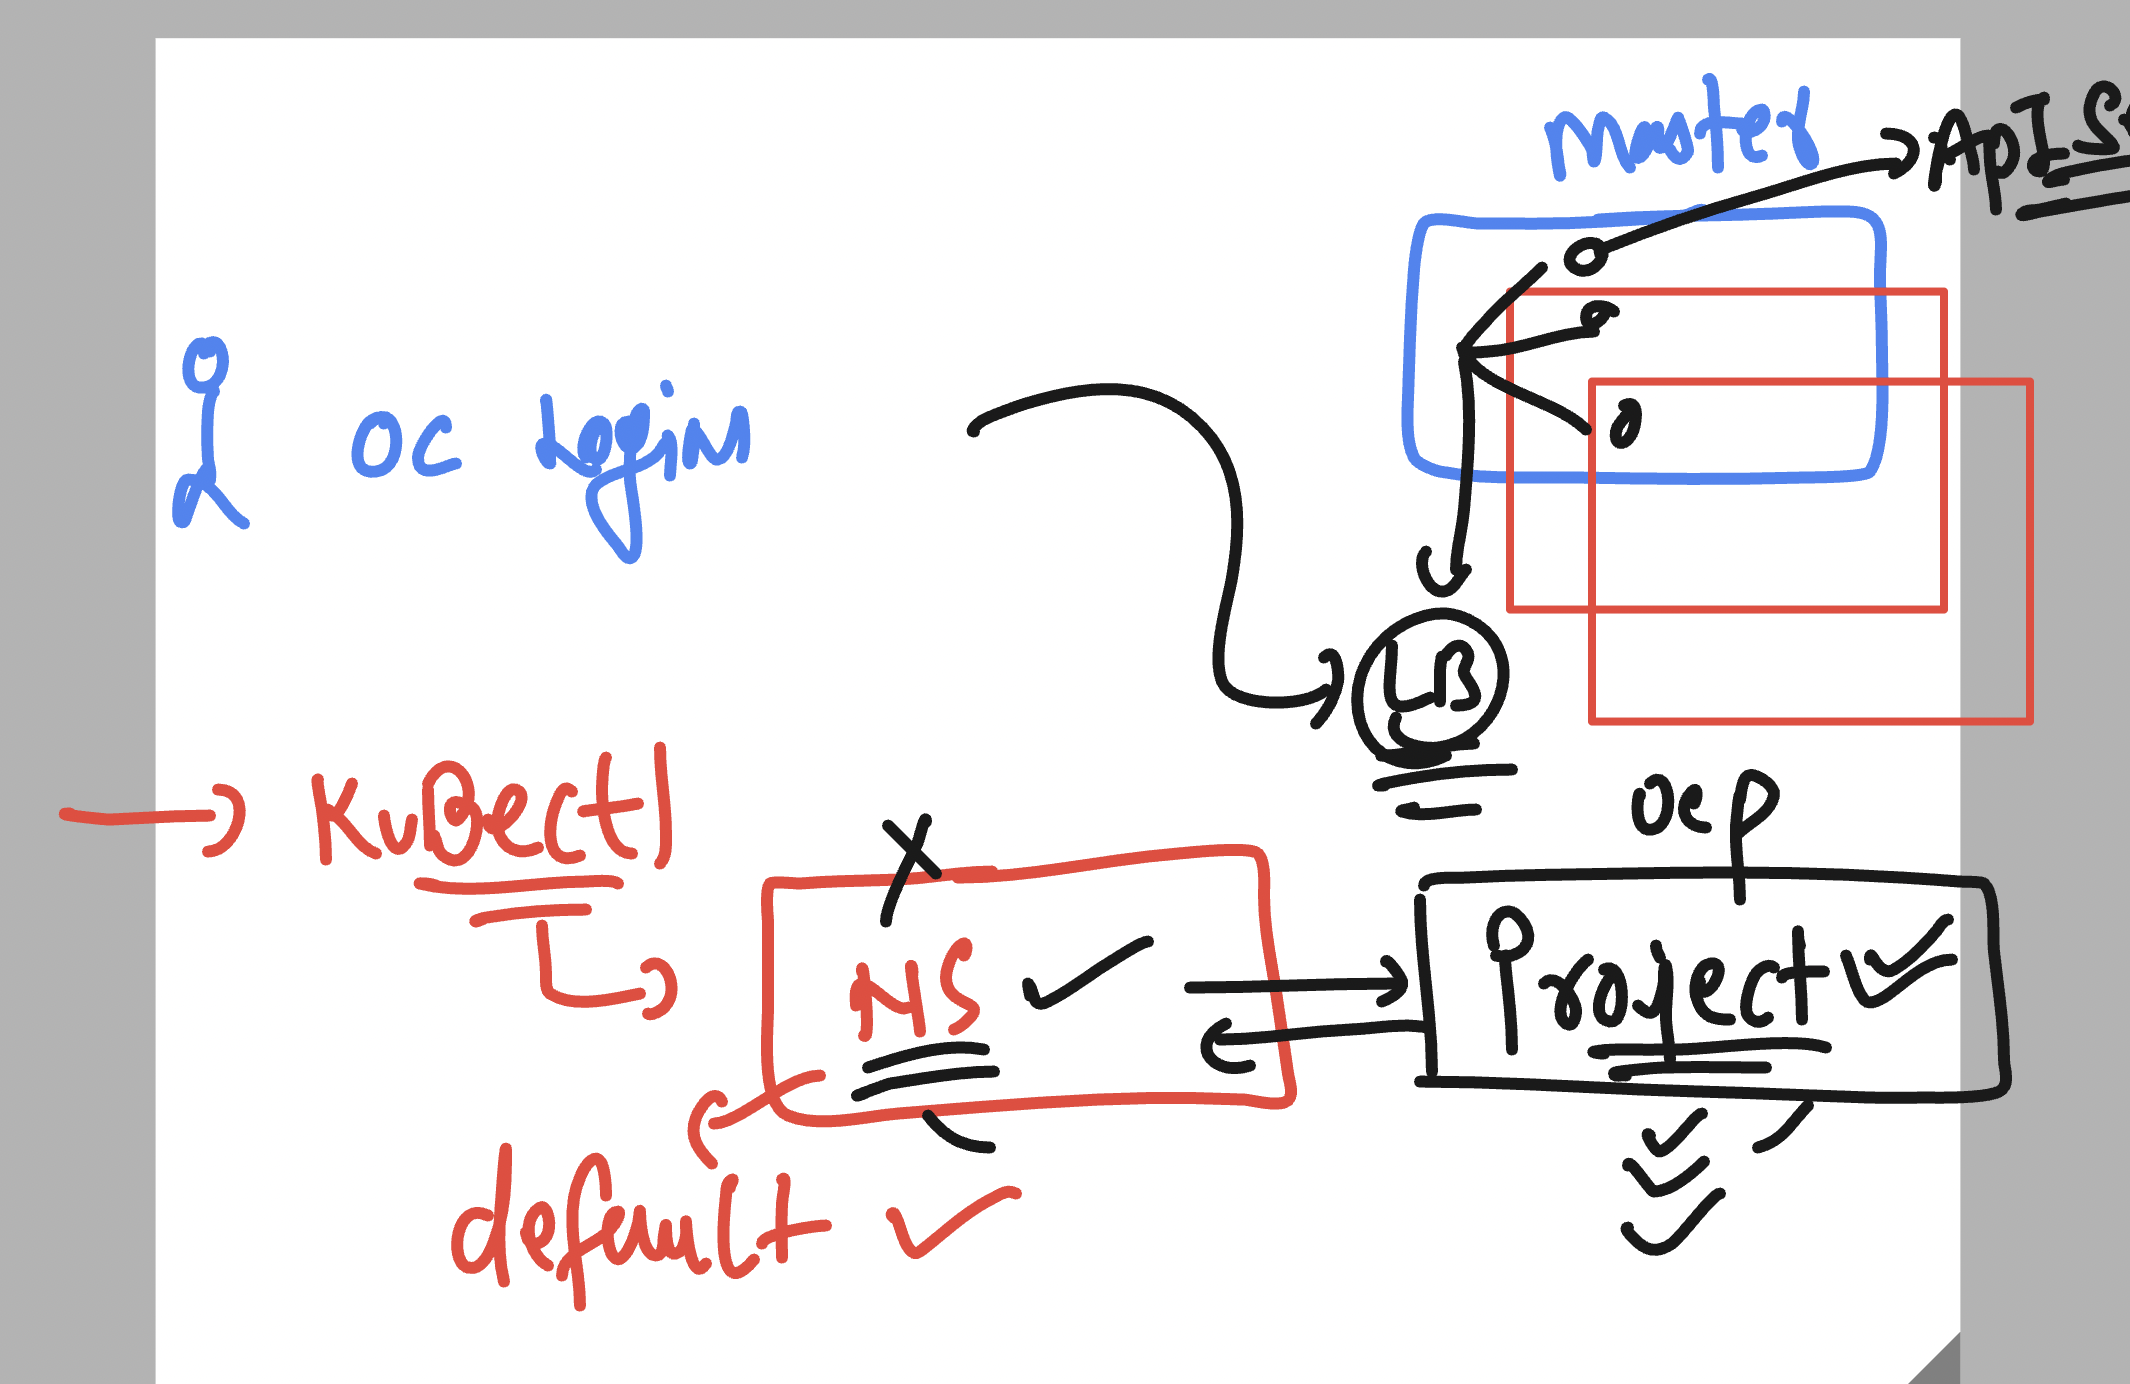 master
ApI
oc Login
LB
KuBectl
ocp
NS
Project
default